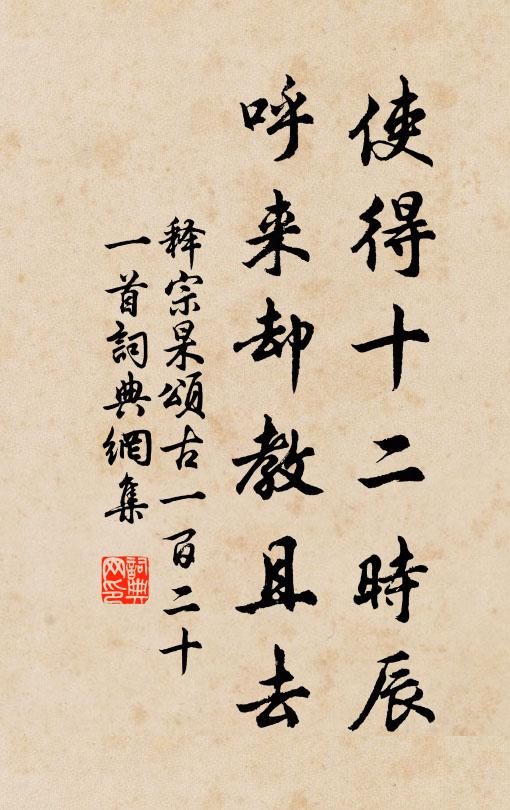 使得十二時辰
呼来却教且去
释宗杲頌古一百二十
一首詞典網集
詞典網印